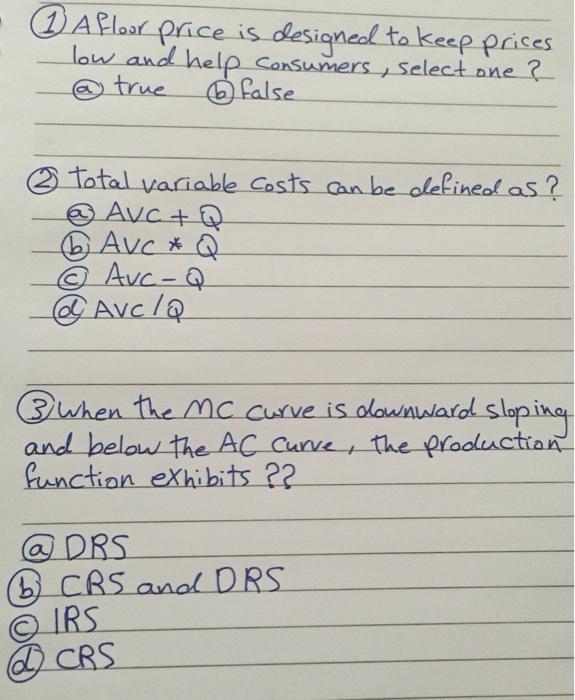 ① A floor price is designed to keep prices
low and help consumers, select one ?
ⓐ true ⓑ false
② total variable costs can be defined as ?
ⓐ AVC + Q
ⓑ AVC * Q
ⓒ AVC - Q
ⓓ AVC / Q
③ when the MC curve is downward sloping
and below the AC curve, the production
function exhibits ??
ⓐ DRS
ⓑ CRS and DRS
ⓒ IRS
ⓓ CRS